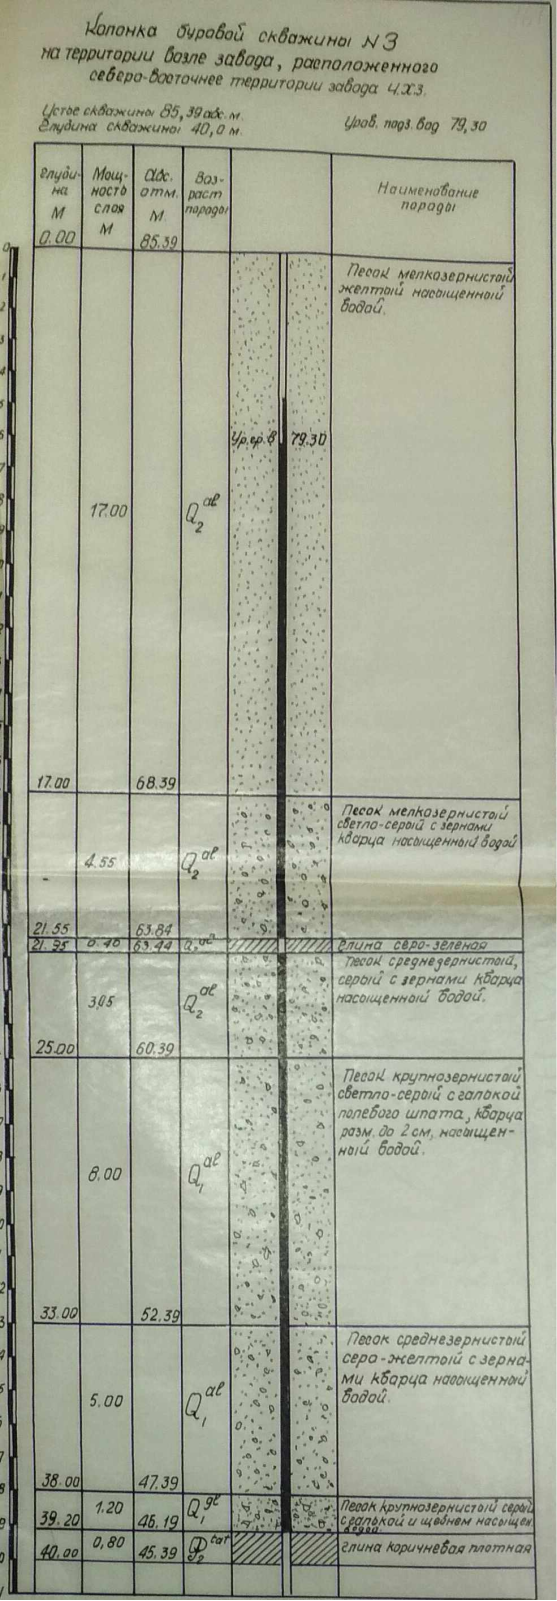 Колонка буровой скважины N3
на территории возле завода, расположенного
северо-восточнее территории завода ч.х.з.
Устье скважины 85,39 абс. м.
Глубина скважины 40,0 м.
Уров. подз. вод 79,30
Глуби-
на
М
0.00
Мощ-
ность
слоя
М
Абс.
отм.
М.
85.39
Воз-
раст
породы
Наименование
породы
Песок мелкозернистый
желтый насыщенный
водой.
Ур.гр.в 79.30
17.00 Q2 al
17.00 68.39
Песок мелкозернистый
светло-серый с зернами
кварца насыщенный водой
4.55 Q2 al
21.55 63.84
21.95 0.40 63.44 глина серо-зеленая
Песок среднезернистый,
серый с зернами кварца
насыщенный водой.
3,05 Q2 al
25.00 60.39
Песок крупнозернистый
светло-серый с галькой
полевого шпата, кварца
разм. до 2 см, насыщен-
ный водой.
8.00 Q1 al
33.00 52.39
Песок среднезернистый
серо-желтый с зерна-
ми кварца насыщенный
водой.
5.00 Q1 al
38.00 47.39
1.20 Q1 gl
39.20 46.19
Песок крупнозернистый серый
с галькой и щебнем насыщен.
водой
0,80
40.00 45.39
глина коричневая плотная